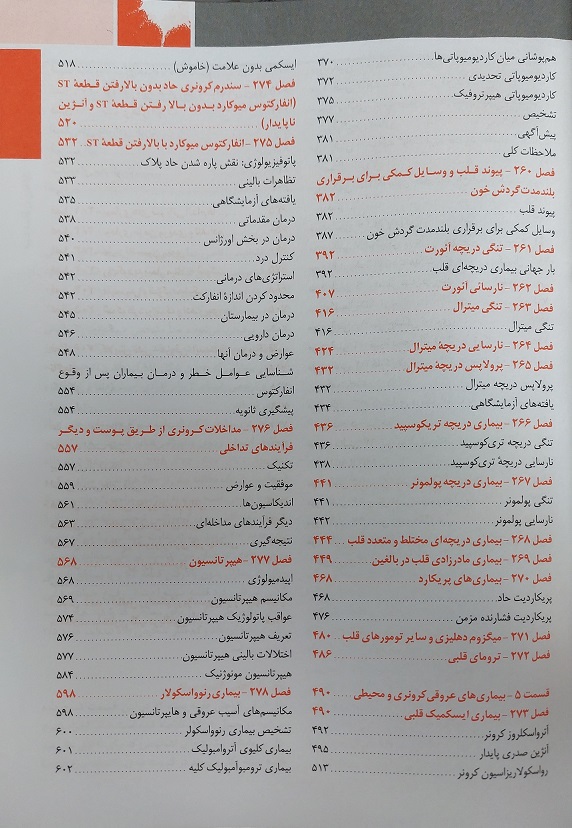 هم‌پوشانی میان کاردیومیوپاتی‌ها ۳۷۰
کاردیومیوپاتی تحدیدی ۳۷۲
کاردیومیوپاتی هیپرتروفیک ۳۷۵
تشخیص ۳۷۷
پیش‌آگهی ۳۸۱
ملاحظات کلی ۳۸۱
فصل ۲۶۰ – پیوند قلب و وسایل کمکی برای برقراری
بلندمدت گردش خون ۳۸۲
پیوند قلب ۳۸۲
وسایل کمکی برای برقراری بلندمدت گردش خون ۳۸۷
فصل ۲۶۱ – تنگی دریچه آئورت ۳۹۲
بار جهانی بیماری دریچه‌ای قلب ۳۹۲
فصل ۲۶۲ – نارسائی آئورت ۴۰۷
فصل ۲۶۳ – تنگی میترال ۴۱۶
تنگی میترال ۴۱۶
فصل ۲۶۴ – نارسایی دریچۀ میترال ۴۲۴
فصل ۲۶۵ – پرولاپس دریچۀ میترال ۴۳۲
پرولاپس دریچه میترال ۴۳۲
یافته‌های آزمایشگاهی ۴۳۴
فصل ۲۶۶ – بیماری دریچه تریکوسپید ۴۳۶
تنگی دریچه تری‌کوسپید ۴۳۶
نارسایی دریچۀ تری‌کوسپید ۴۳۸
فصل ۲۶۷ – بیماری دریچه پولمونر ۴۴۱
تنگی پولمونر ۴۴۱
نارسایی پولمونر ۴۴۲
فصل ۲۶۸ – بیماری دریچه‌ای مختلط و متعدد قلب ۴۴۴
فصل ۲۶۹ – بیماری مادرزادی قلب در بالغین ۴۴۹
فصل ۲۷۰ – بیماری‌های پریکارد ۴۶۸
پریکاردیت حاد ۴۶۸
پریکاردیت فشارنده مزمن ۴۷۶
فصل ۲۷۱ – میگزوم دهلیزی و سایر تومورهای قلب ۴۸۰
فصل ۲۷۲ – ترومای قلبی ۴۸۶
قسمت ۵ – بیماری‌های عروقی کرونری و محیطی ۴۹۰
فصل ۲۷۳ – بیماری ایسکمیک قلبی ۴۹۰
آترواسکلروز کرونر ۴۹۲
آنژین صدری پایدار ۴۹۵
رواسکولاریزاسیون کرونر ۵۱۳
ایسکمی بدون علامت (خاموش) ۵۱۸
فصل ۲۷۴ – سندرم کرونری حاد بدون بالا رفتن قطعۀ ST
(انفارکتوس میوکارد بدون بالا رفتن قطعۀ ST و آنژین
ناپایدار) ۵۲۰
فصل ۲۷۵ – انفارکتوس میوکارد با بالا رفتن قطعۀ ST ۵۳۲
پاتوفیزیولوژی: نقش پاره شدن حاد پلاک ۵۳۲
تظاهرات بالینی ۵۳۳
یافته‌های آزمایشگاهی ۵۳۵
درمان مقدماتی ۵۳۸
درمان در بخش اورژانس ۵۴۰
کنترل درد ۵۴۱
استراتژی‌های درمانی ۵۴۲
محدود کردن اندازۀ انفارکت ۵۴۲
درمان در بیمارستان ۵۴۵
درمان دارویی ۵۴۶
عوارض و درمان آنها ۵۴۸
شناسایی عوامل خطر و درمان بیماران پس از وقوع
انفارکتوس ۵۵۴
پیشگیری ثانویه ۵۵۴
فصل ۲۷۶ – مداخلات کرونری از طریق پوست و دیگر
فرآیندهای تداخلی ۵۵۷
تکنیک ۵۵۷
موفقیت و عوارض ۵۵۹
اندیکاسیون‌ها ۵۶۱
دیگر فرآیندهای مداخله‌ای ۵۶۳
نتیجه‌گیری ۵۶۷
فصل ۲۷۷ – هیپرتانسیون ۵۶۸
اپیدمیولوژی ۵۶۸
مکانیسم هیپرتانسیون ۵۶۹
عواقب پاتولوژیک هیپرتانسیون ۵۷۴
تعریف هیپرتانسیون ۵۷۶
اختلالات بالینی هیپرتانسیون ۵۷۷
هیپرتانسیون مونوژنیک ۵۸۴
فصل ۲۷۸ – بیماری رنوواسکولار ۵۹۸
مکانیسم‌های آسیب عروقی و هایپرتانسیون ۵۹۸
تشخیص بیماری رنوواسکولر ۶۰۰
بیماری کلیوی آتروآمبولیک ۶۰۱
بیماری ترومبوآمبولیک کلیه ۶۰۲